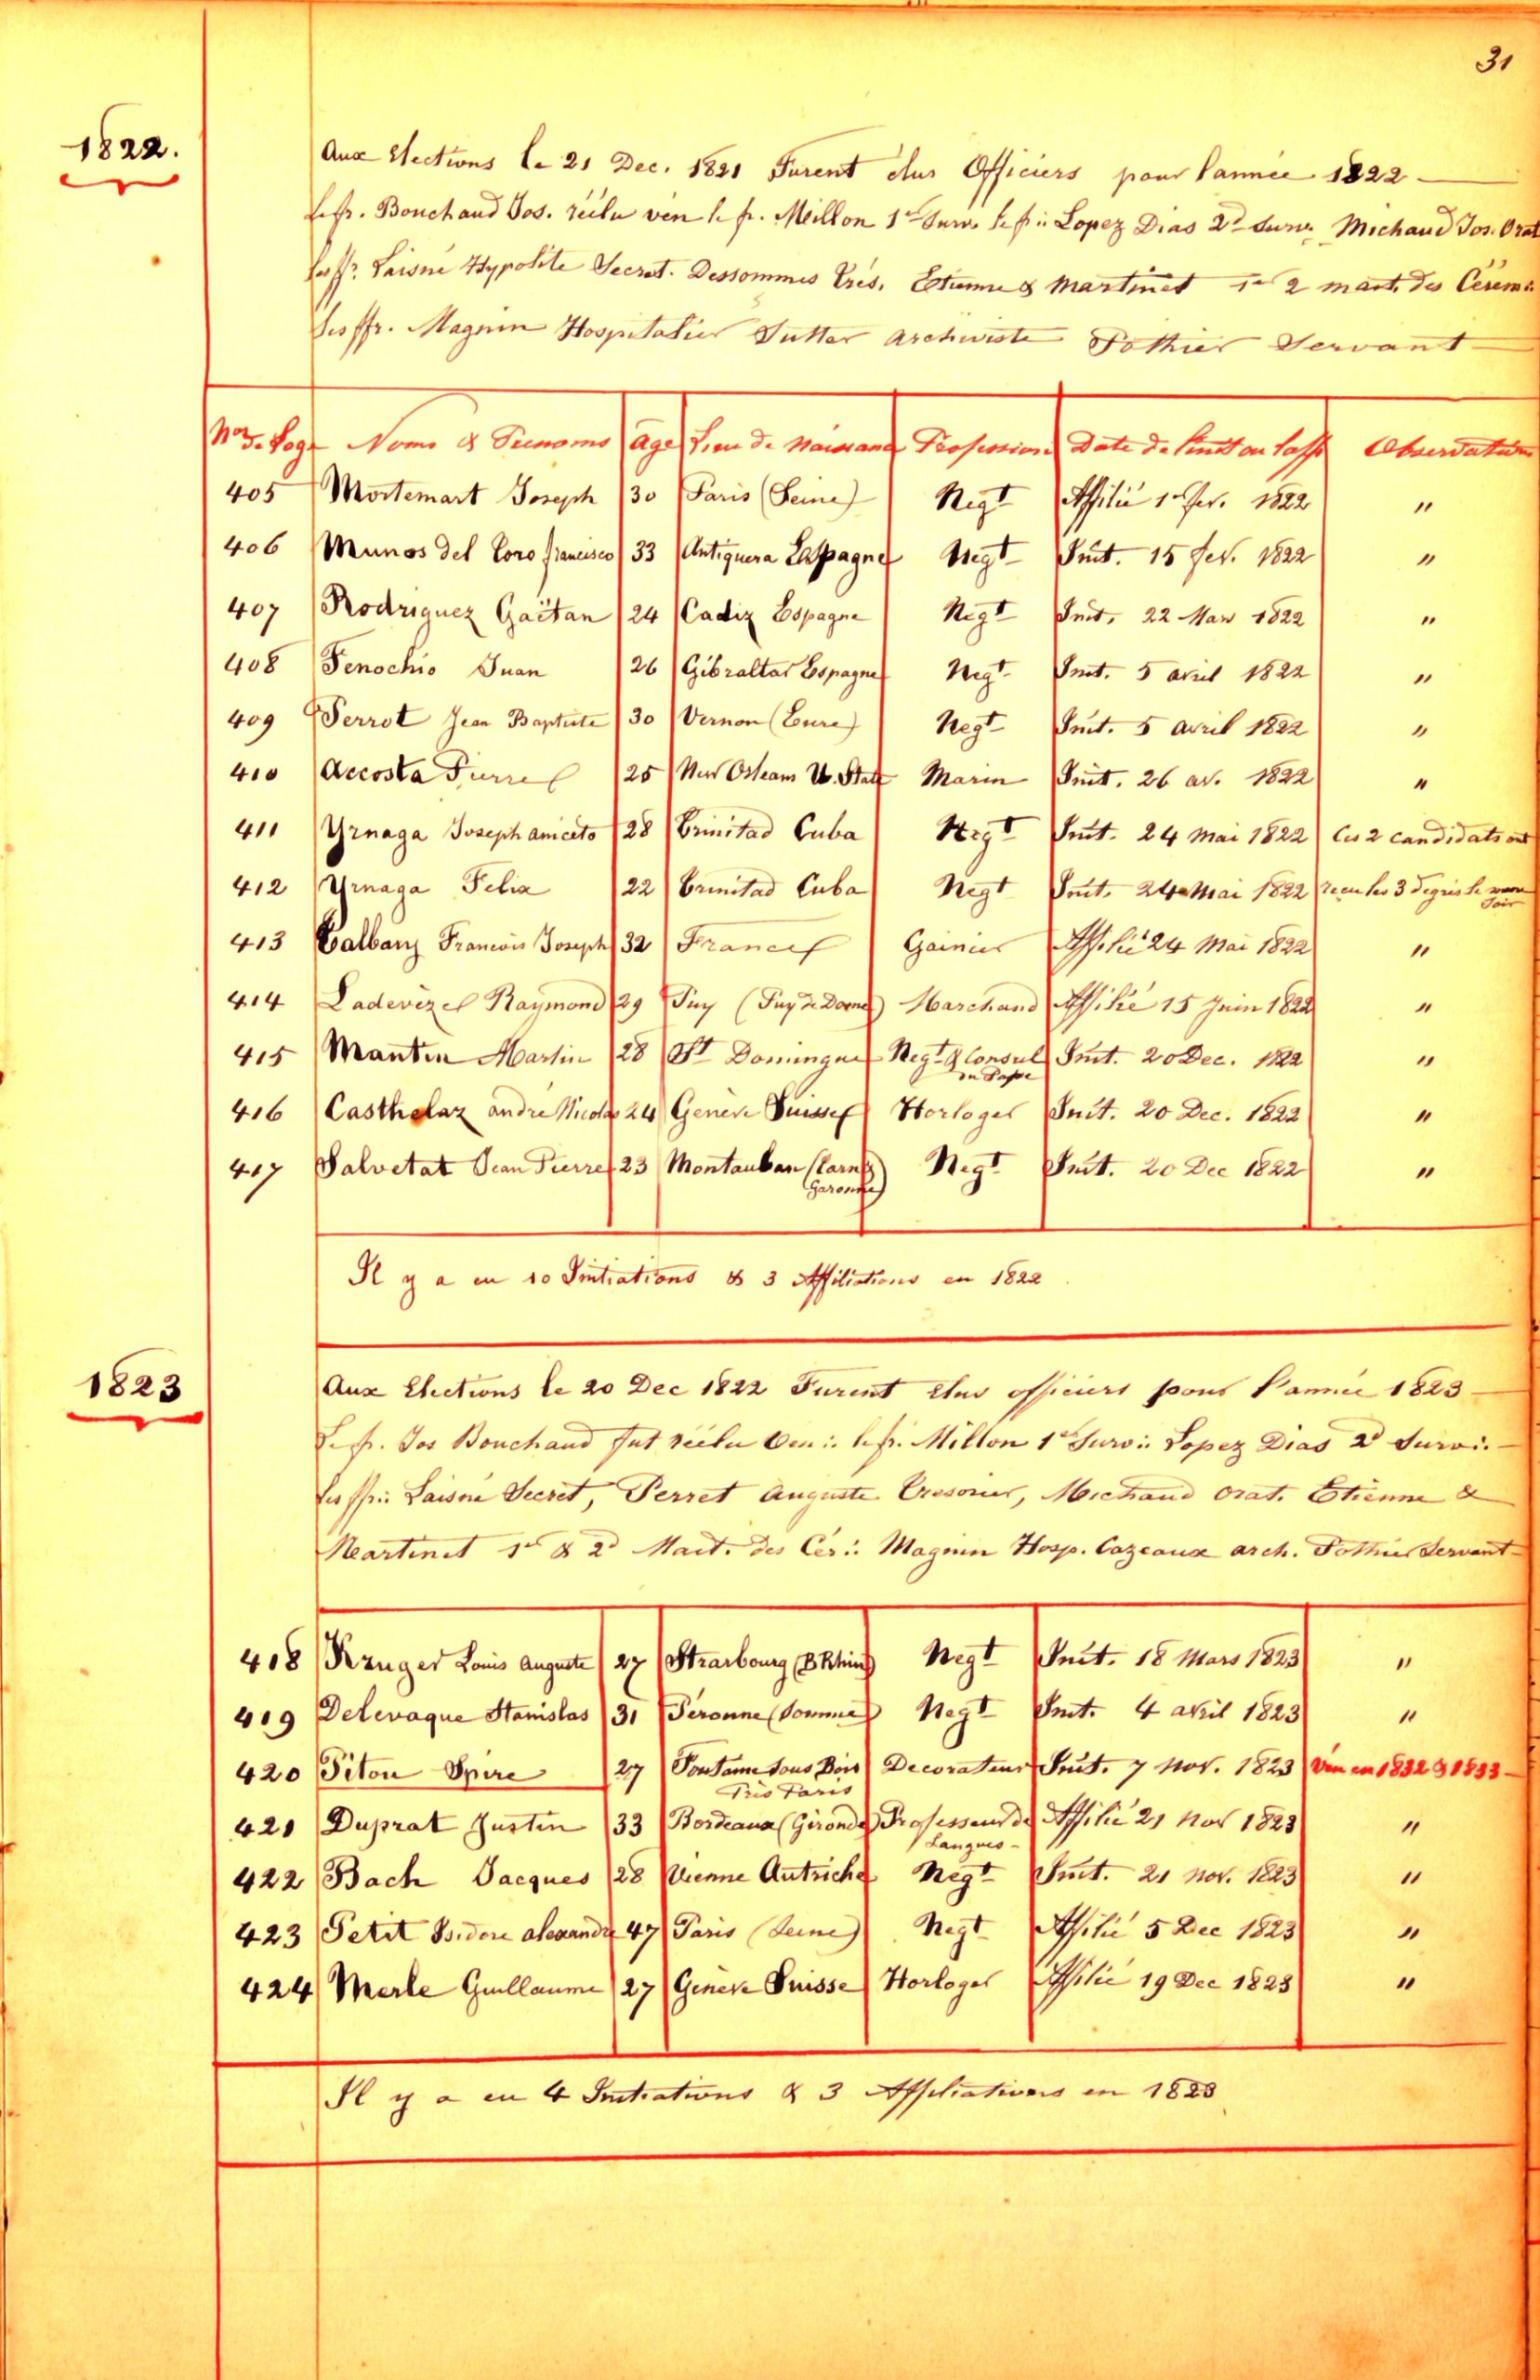 31
1822.
Aux Elections le 21 Dec. 1821 Furent élus Officiers pour l'année 1822
Le fr. Bouchaud Jos. réélu ven le fr. Millon 1er Surv. le fr∴ Lopez Dias 2d Surv. Michaud Jos. Orat
les ffr. Laisné Hypolite Secret. Dessommes Trés. Etienne & Martinet 1er 2 mait. des Cérém.
les ffr. Magnin Hospitalier Sutter archiviste Pothier Servant
Nos d. Loge Noms & Prenoms age Lieu de naissance Profession Date de l'init ou l'affi Observations
405 Mortemart Joseph 30 Paris (Seine) Negt Affilié 1er fev. 1822 "
406 Munos del Toro francisco 33 Antiquera Espagne Negt Init. 15 fev. 1822 "
407 Rodriguez Gaëtan 24 Cadiz Espagne Negt Init. 22 Mars 1822 "
408 Fenochio Juan 26 Gibraltar Espagne Negt Init. 5 avril 1822 "
409 Perrot Jean Baptiste 30 Vernon (Eure) Negt Init. 5 avril 1822 "
410 Accosta Pierre 25 New Orleans U. State Marin Init. 26 av. 1822 "
411 Yrnaga Joseph aniceto 28 Trinitad Cuba Negt Init. 24 mai 1822 Ces 2 candidats ont
412 Yrnaga Felix 22 Trinitad Cuba Negt Init. 24 Mai 1822 recu les 3 degrés le meme
soir
413 Talbary Francois Joseph 32 France Gainier Affilié 24 Mai 1822 "
414 Ladevèze Raymond 29 Puy (Puy de Dome) Marchand Affilié 15 Juin 1822 "
415 Mantin Martin 28 St Domingue Negt & Consul Init. 20 Dec. 1822 "
416 Casthelaz andré Nicolas 24 Genève Suisse Horloger Init. 20 Dec. 1822 "
417 Salvetat Jean Pierre 23 Montauban (Tarn & Negt Init. 20 Dec 1822 "
Garonne)
Il y a eu 10 Initiations & 3 Affiliations en 1822
1823
Aux Elections le 20 Dec 1822 Furent élus officiers pour l'année 1823
Le fr. Jos Bouchaud fut réélu Ven∴ le fr. Millon 1er Surv∴ Lopez Dias 2d Surv∴
les ffr∴ Laisné Secret, Perret Auguste Tresorier, Michaud orat. Etienne &
Martinet 1er & 2d Mait. des Cér∴ Magnin Hosp. Cazeaux arch. Pothier Servant
418 Kruger Louis Auguste 27 Strasbourg (B Rhin) Negt Init. 18 Mars 1823 "
419 Delevaque Stanislas 31 Péronne (Somme) Negt Init. 4 avril 1823 "
420 Piton Spire 27 Fontaine sous Bois Decorateur Init. 7 Nov. 1823 Ven en 1832 & 1833
Près Paris
421 Duprat Justin 33 Bordeaux (Gironde) Professeur de Affilié 21 Nov 1823 "
Langues
422 Bach Jacques 28 Vienne Autriche Negt Init. 21 Nov. 1823 "
423 Petit Isidore alexandre 47 Paris (Seine) Negt Affilié 5 Dec 1823 "
424 Merle Guillaume 27 Genève Suisse Horloger Affilié 19 Dec 1823 "
Il y a eu 4 Initiations & 3 Affiliations en 1823